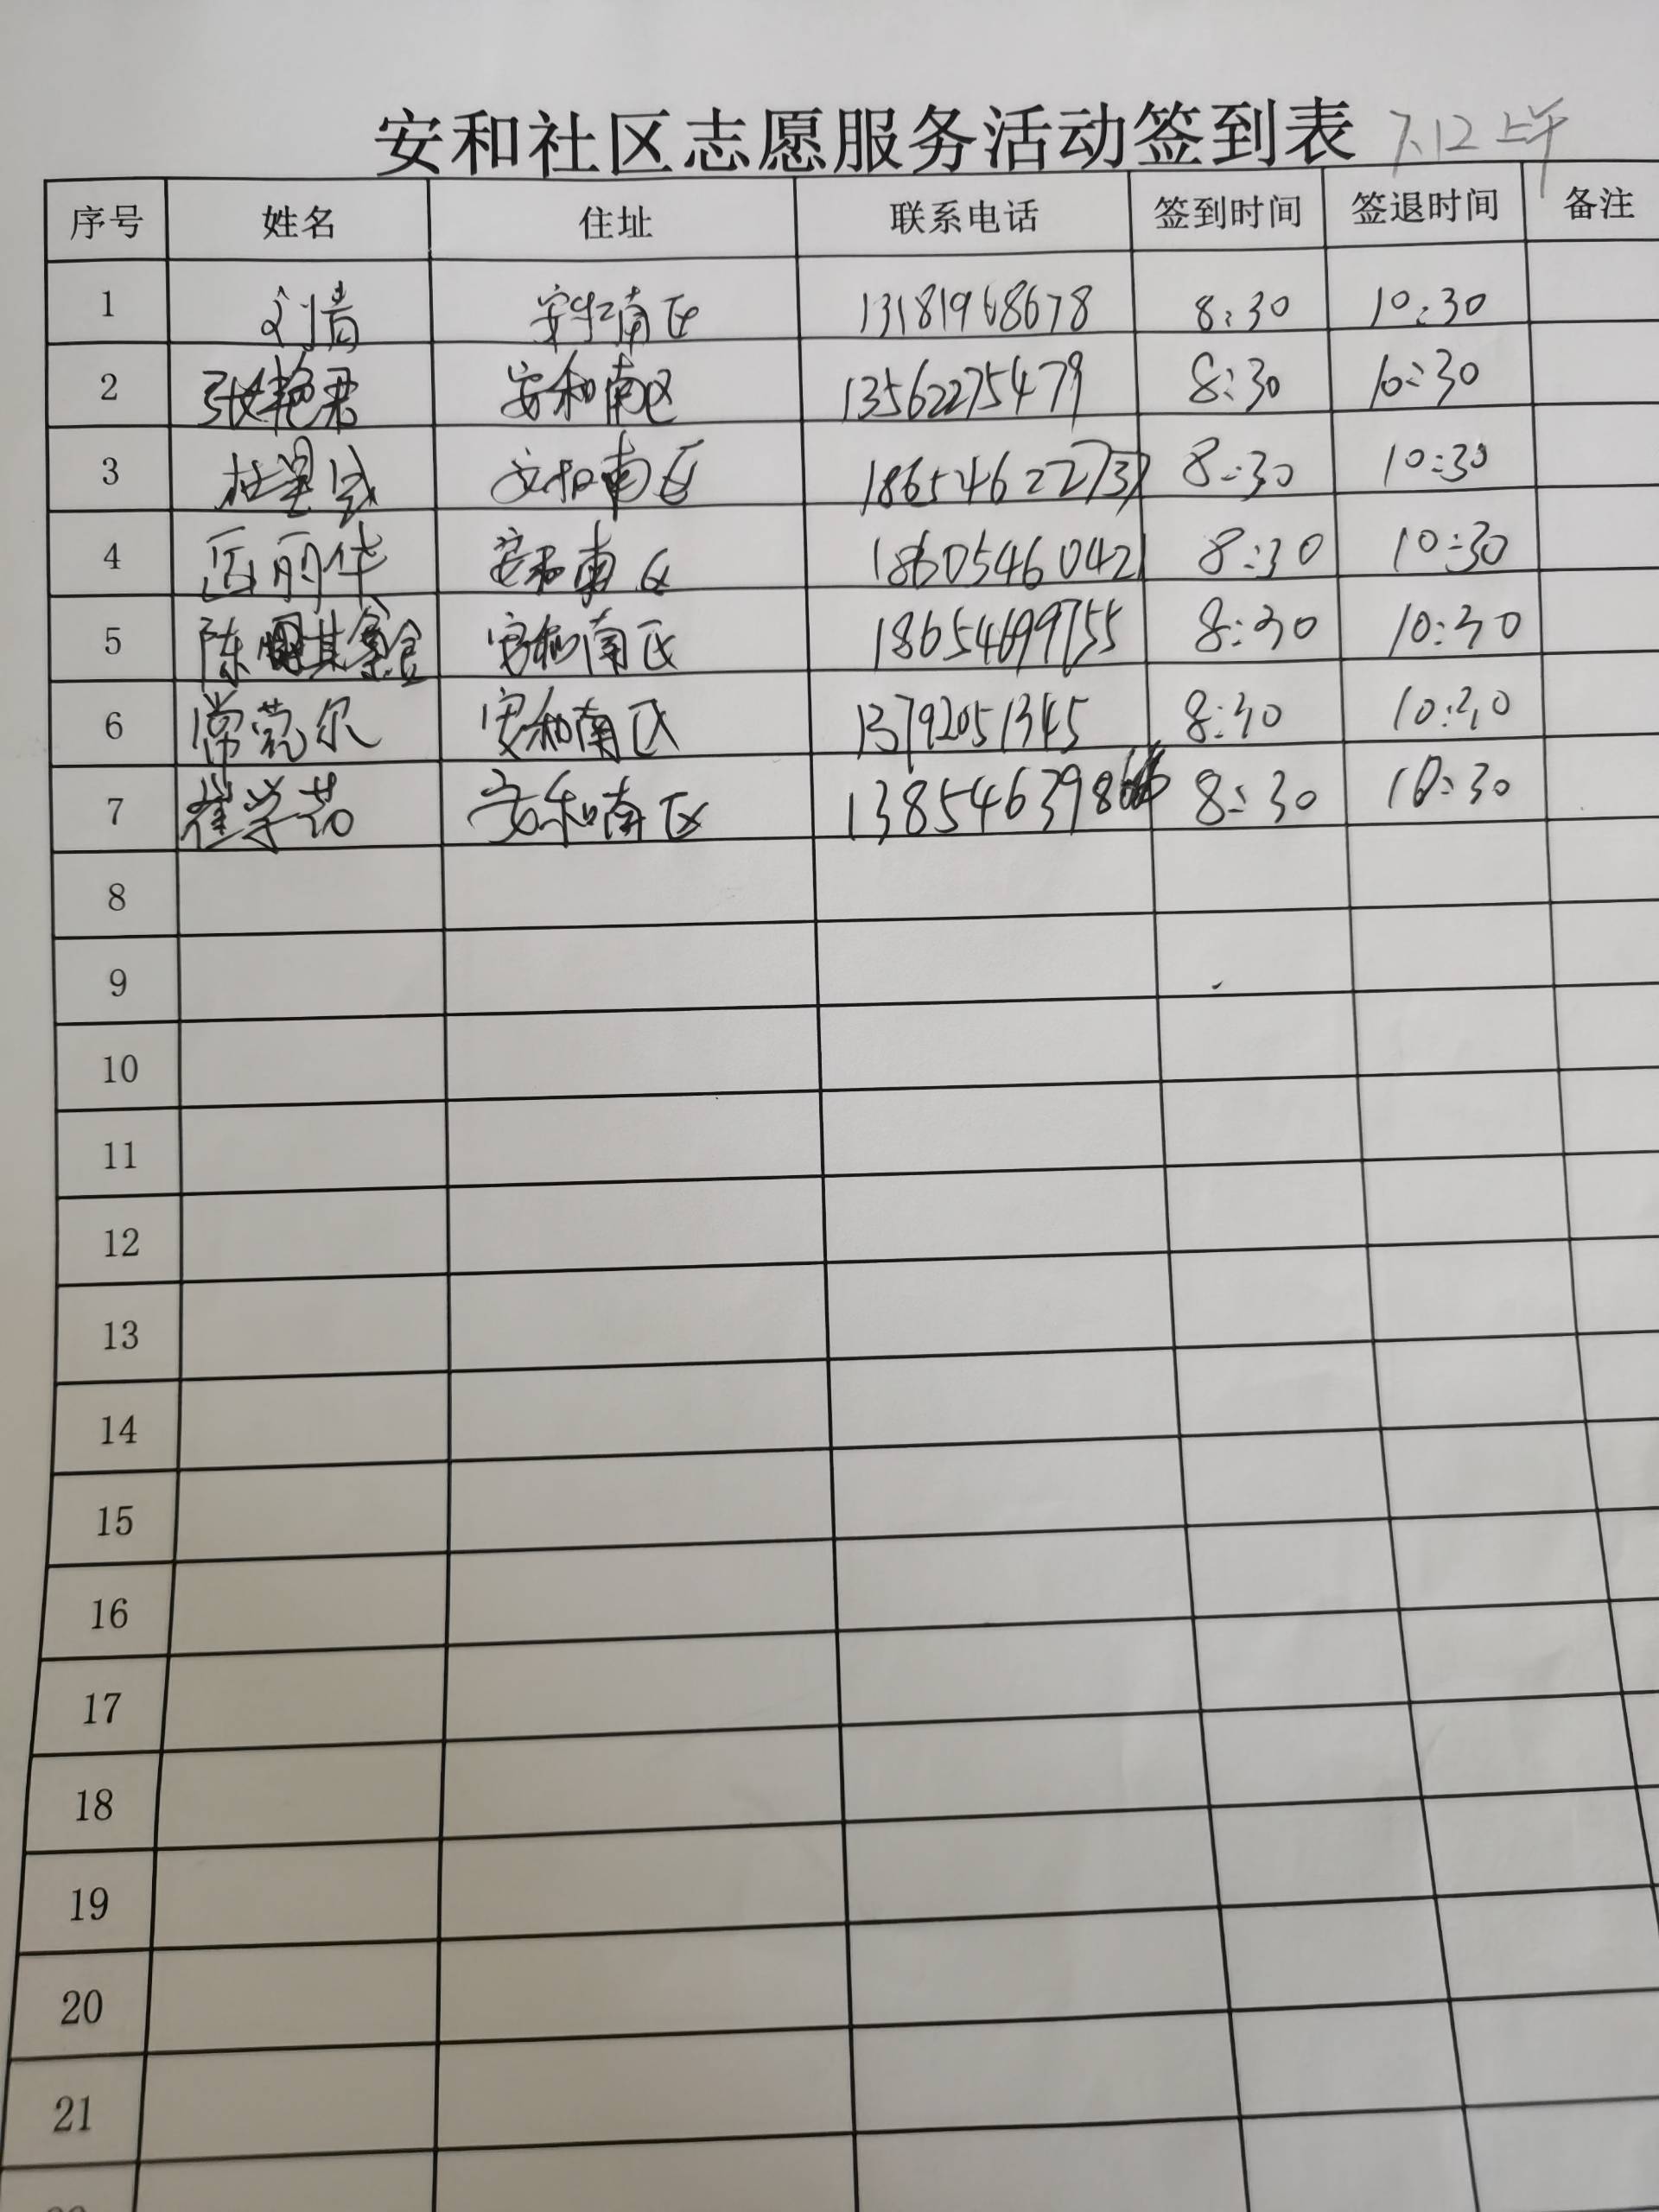 安和社区志愿服务活动签到表 7.12上午
序号 姓名 住址 联系电话 签到时间 签退时间 备注
1 刘青 安和南区 13181968678 8:30 10:30
2 张艳君 安和南区 13562275479 8:30 10:30
3 安和南区 18654622737 8:30 10:30
4 岳丽华 安和南区 18605460421 8:30 10:30
5 陈 安和南区 18654699755 8:30 10:30
6 常莞尔 安和南区 13792051345 8:30 10:30
7 崔学茹 安和南区 8:30 10:30
8
9
10
11
12
13
14
15
16
17
18
19
20
21